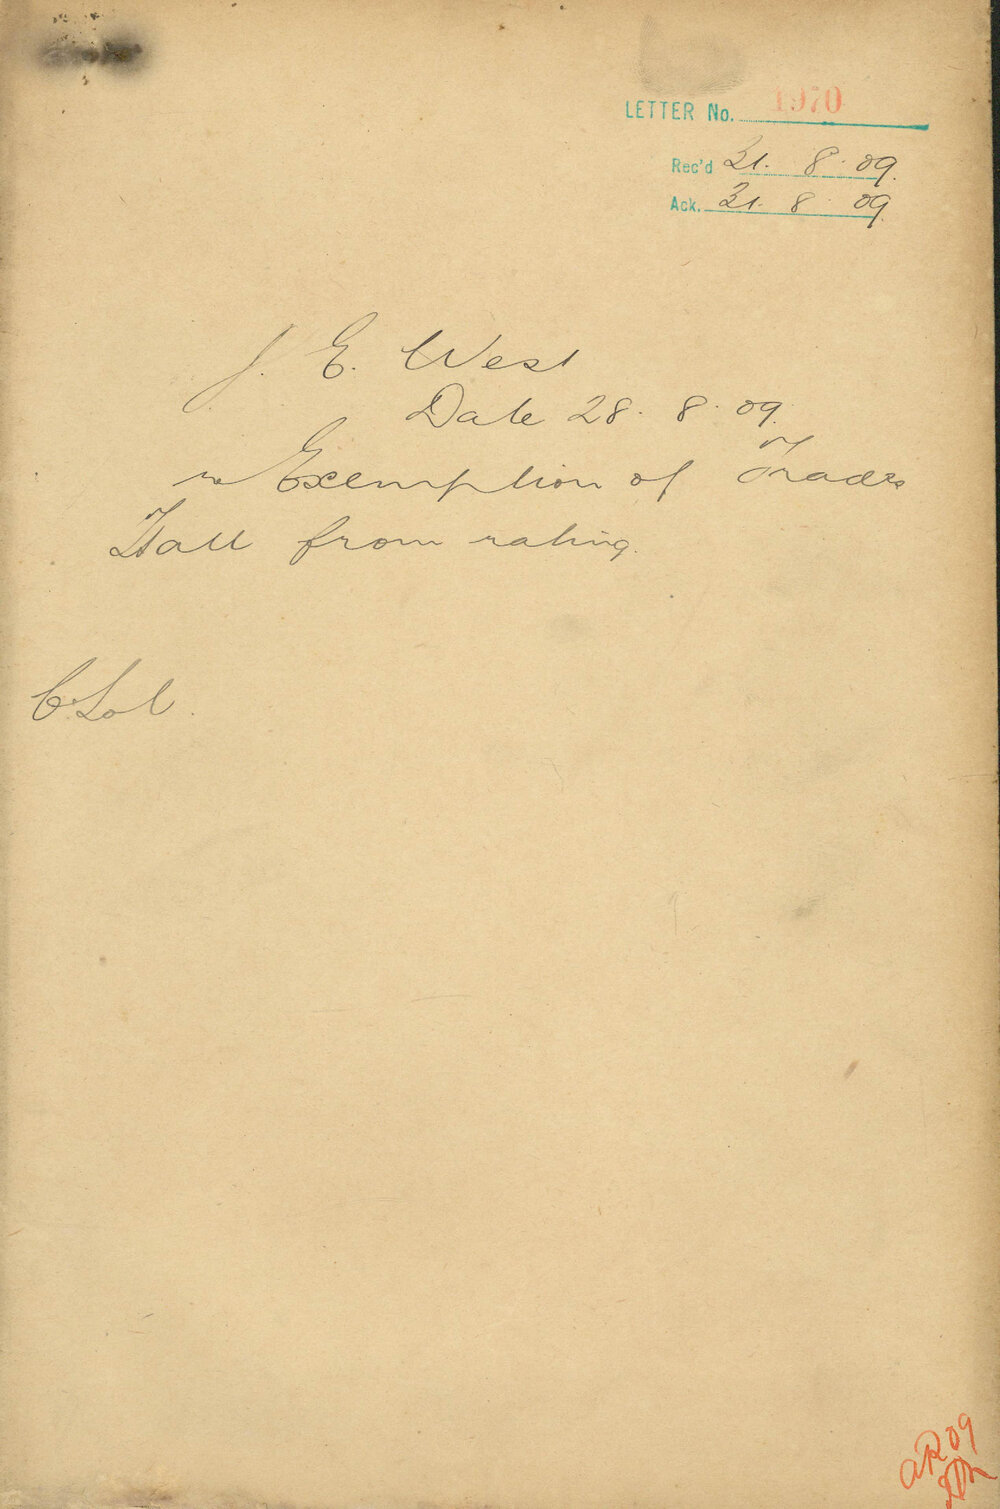 LETTER No. 1970
Rec'd 31. 8. 09.
Ack. 31. 8. 09.
J. E. West
Date 28. 8. 09.
re Exemption of Trades
Hall from rating.
C. Sol.
09